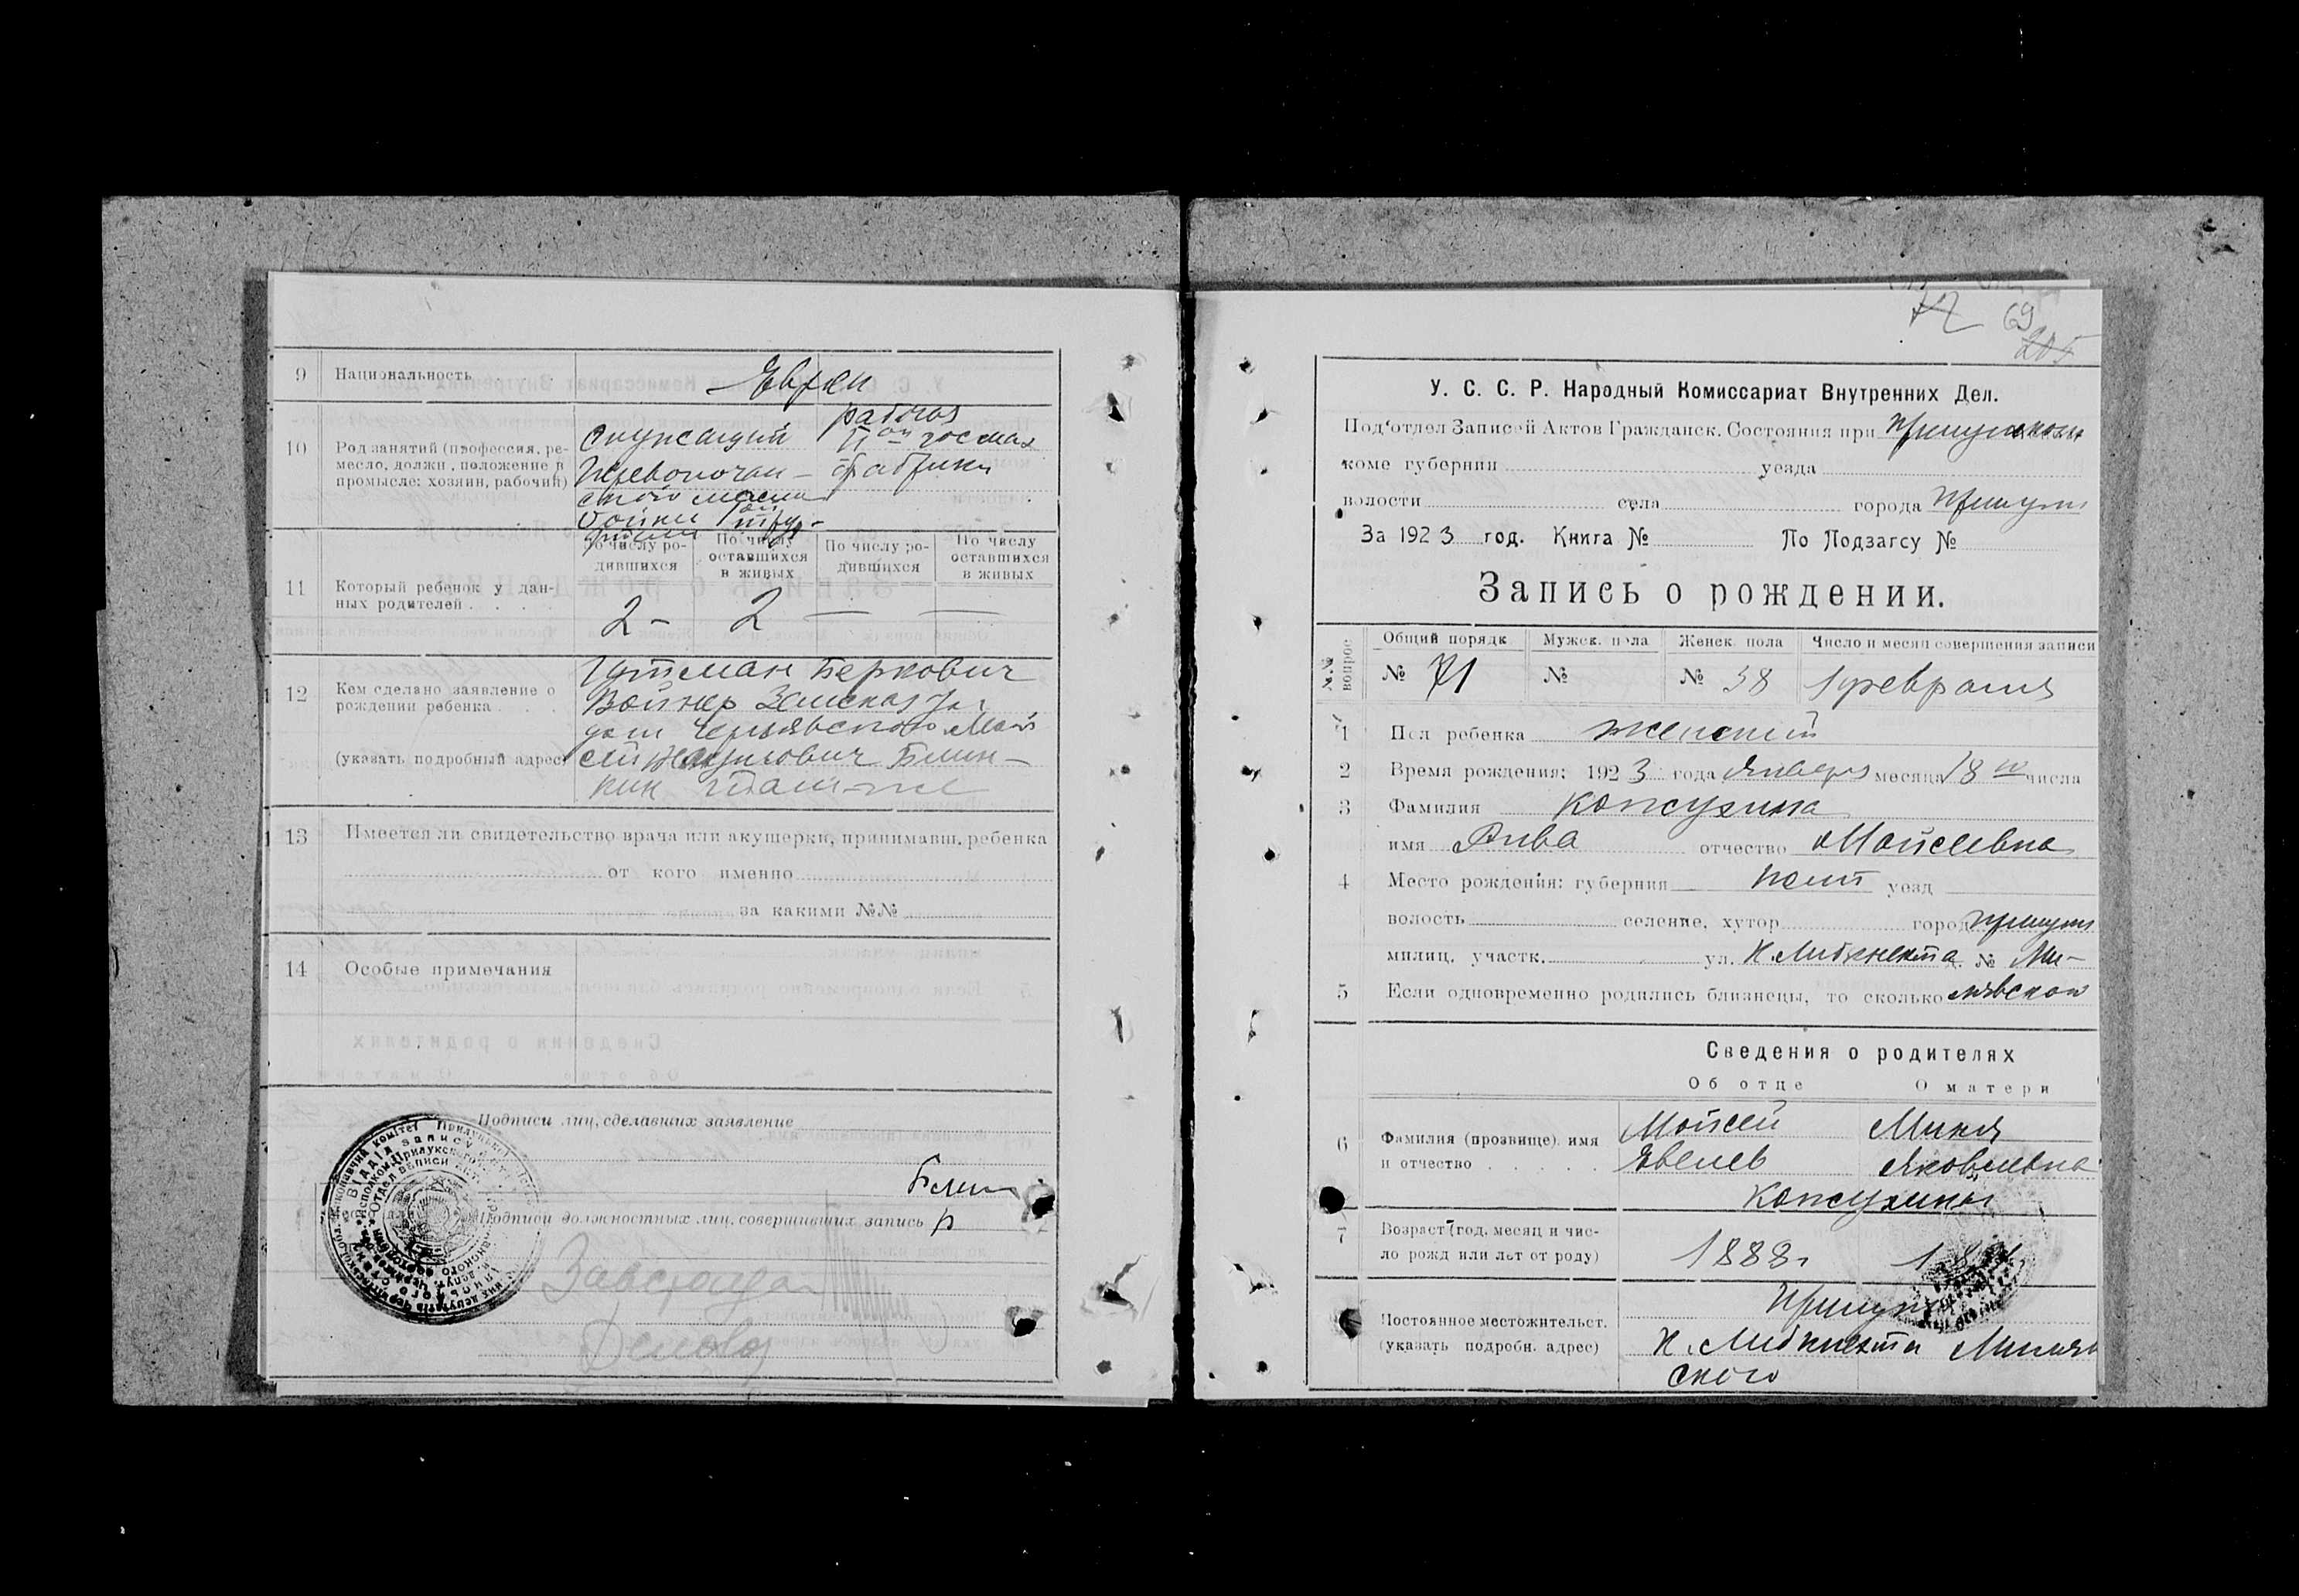 9 Национальность Евреи
10 Род занятий (профессия, ре-
месло, должн., положение в
промысле: хозяин, рабочий)
служащий
Переволочан-
ского масло
бойки
рабочая
II ой госмах
фабрики
11 Который ребенок у дан-
ных родителей . . . .
По числу ро-
дившихся
По числу
оставшихся
в живых
По числу ро-
дившихся
По числу
оставшихся
в живых
2 – 2 — —
12 Кем сделано заявление о
рождении ребенка . . .
(указать подробный адрес)
Гутман Беркович
Войнер Земская ул
дом Чернявского Мой
сей Блин-
ник там-же
13 Имеется ли свидетельство врача или акушерки, принимавш. ребенка
от кого именно
за какими №№
14 Особые примечания
Подписи лиц, сделавших заявление
Блин
Подписи должностных лиц, совершивших запись
69
У. С. С. Р. Народный Комиссариат Внутренних Дел.
Под'отдел Записей Актов Гражданск. Состояния при
коме губернии уезда
волости села города Прилуки
За 1923 год. Книга № По Подзагсу №
Запись о рождении.
№.№ вопрос
Общий порядк Мужск. пола Женск. пола Число и месяц совершения записи
№ 71 № № 38 1 февраля
1 Пол ребенка женский
2 Время рождения: 1923 года Января месяца 18 го числа
3 Фамилия Кожухина
имя Рива отчество Мойсеевна
4 Место рождения: губерния Полт уезд
волость селение, хутор город Прилуки
милиц. участк. ул. К. Либкнехта № Ми-
5 Если одновременно родились близнецы, то сколько
Сведения о родителях
Об отце О матери
6 Фамилия (прозвище) имя
и отчество . . . . .
Мойсей Миня
Евелев Яковлевна
Кожухины
7 Возраст (год, месяц и чис-
ло рожд или лет от роду)
1888г
Постоянное местожительст.
(указать подробн. адрес)
Прилуки
К. Либкнехта
ского